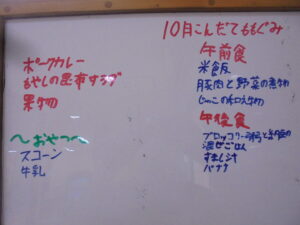 ポークカレー
もやしの昆布サラダ
果物
〜おやつ〜
スコーン
牛乳
10月こんだてももぐみ
午前食
米飯
豚肉と野菜の煮物
じゃこの和え物
午後食
ブロッコリーと
混ぜごはん
すまし汁
バナナ